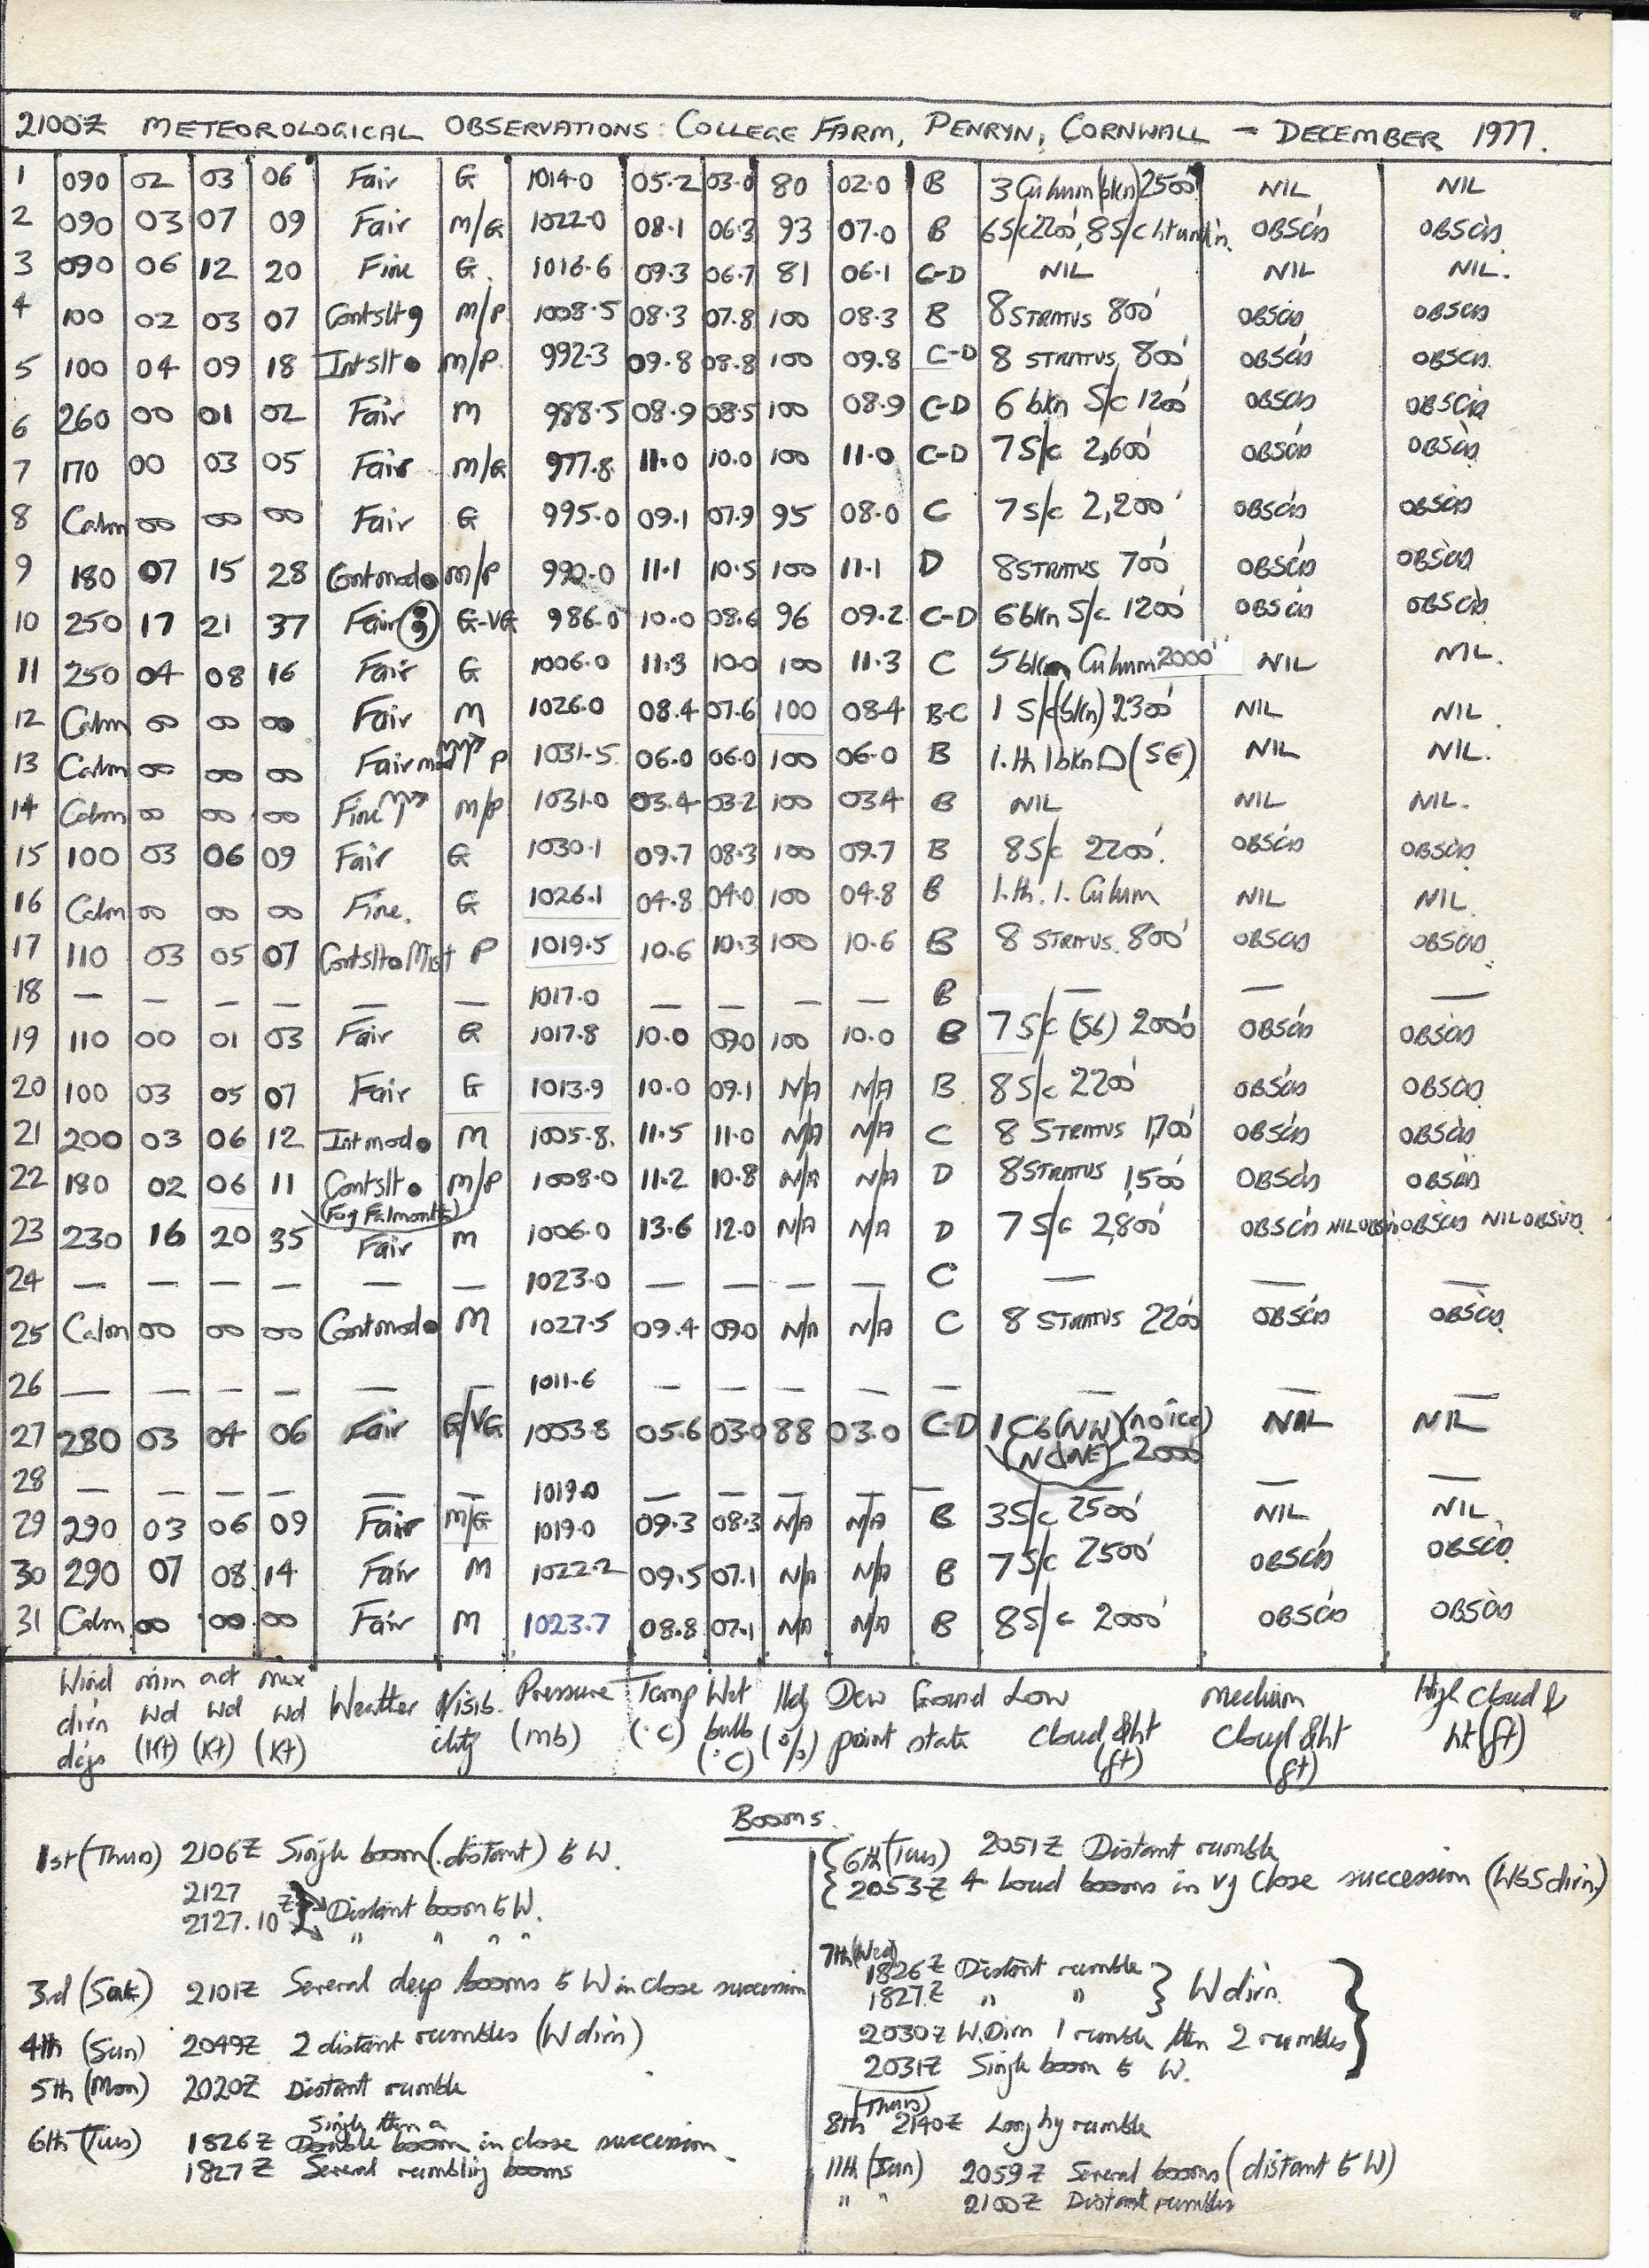 2100Z METEOROLOGICAL OBSERVATIONS: COLLEGE FARM, PENRYN, CORNWALL - DECEMBER 1977.
1 090 02 03 06 Fair G 1014.0 05.2 03.0 80 02.0 B 3 Cu hum (bkn) 2500' NIL NIL
2 090 03 07 09 Fair M/G 1022.0 08.1 06.3 93 07.0 B 6S/c 2200', 8S/c OBSC'D OBSC'D
3 090 06 12 20 Fine G. 1016.6 09.3 06.7 81 06.1 C-D NIL NIL NIL.
4 100 02 03 07 Contslt 9 M/P 1008.5 08.3 07.8 100 08.3 B 8 STRATUS 800' OBSC'D OBSC'D
5 100 04 09 18 Intslt ● M/P. 992.3 09.8 08.8 100 09.8 C-D 8 STRATUS 800' OBSC'D OBSC'D.
6 260 00 01 02 Fair M 988.5 08.9 08.5 100 08.9 C-D 6 bkn S/c 1200' OBSC'D OBSC'D
7 170 00 03 05 Fair M/G 977.8 11.0 10.0 100 11.0 C-D 7 S/c 2,600' OBSC'D OBSC'D
8 Calm 00 00 00 Fair G 995.0 09.1 07.9 95 08.0 C 7 S/c 2,200' OBSC'D OBSC'D
9 180 07 15 28 Contmod ● M/P 990.0 11.1 10.5 100 11.1 D 8 STRATUS 700' OBSC'D OBSC'D
10 250 17 21 37 Fair G-VG 986.0 10.0 08.6 96 09.2 C-D 6 bkn S/c 1200' OBSC'D OBSC'D
11 250 04 08 16 Fair G 1006.0 11.3 10.0 100 11.3 C 5 bkn Cu hum 2000' NIL NIL.
12 Calm 00 00 00 Fair M 1026.0 08.4 07.6 100 08.4 B-C 1 S/c (bkn) 2300' NIL NIL.
13 Calm 00 00 00 Fair P 1031.5 06.0 06.0 100 06.0 B 1.th 1 bkn (SE) NIL NIL.
14 Calm 00 00 00 Fine M/P 1031.0 03.4 03.2 100 03.4 B NIL NIL NIL.
15 100 03 06 09 Fair G 1030.1 09.7 08.3 100 09.7 B 8S/c 2200'. OBSC'D OBSC'D
16 Calm 00 00 00 Fine. G 1026.1 04.8 04.0 100 04.8 B 1.th. 1. Cu hum NIL NIL.
17 110 03 05 07 Contslt ● Mist P 1019.5 10.6 10.3 100 10.6 B 8 STRATUS. 800' OBSC'D OBSC'D.
18 — — — — — — 1017.0 — — — — B — — —
19 110 00 01 03 Fair G 1017.8 10.0 09.0 100 10.0 B 7 S/c (S6) 2000' OBSC'D OBSC'D
20 100 03 05 07 Fair G 1013.9 10.0 09.1 N/A N/A B 8 S/c 2200' OBSC'D OBSC'D
21 200 03 06 12 Intmod ● M 1005.8. 11.5 11.0 N/A N/A C 8 STRATUS 1,700' OBSC'D OBSC'D
22 180 02 06 11 Contslt ● M/P 1008.0 11.2 10.8 N/A N/A D 8 STRATUS 1,500' OBSC'D OBSC'D
(Fog Falmouth)
23 230 16 20 35 Fair M 1006.0 13.6 12.0 N/A N/A D 7 S/c 2,800' OBSC'D NIL OBSC'D NIL OBSVD.
24 — — — — — — 1023.0 — — — — C — — —
25 Calm 00 00 00 Contmod ● M 1027.5 09.4 09.0 N/A N/A C 8 STRATUS 2200' OBSC'D OBSC'D.
26 — — — — — — 1011.6 — — — — — — — —
27 280 03 04 06 Fair G/VG 1003.8 05.6 03.0 88 03.0 C-D 1 Cb (NW) (no ice) NIL NIL
(N & NE) 2000'
28 — — — — — — 1019.0 — — — — — — — —
29 290 03 06 09 Fair M/G 1019.0 09.3 08.3 N/A N/A B 3S/c 2500' NIL NIL.
30 290 07 08 14 Fair M 1022.2 09.5 07.1 N/A N/A B 7 S/c 2500' OBSC'D OBSC'D
31 Calm 00 00 00 Fair M 1023.7 08.8 07.1 N/A N/A B 8S/c 2000' OBSC'D OBSC'D
Wind min act max Weather Visib- Pressure Temp Wet Hdy Dew Ground Low medium High Cloud &
dirn Wd Wd Wd ility (mb) (°C) bulb (%) point state Cloud & ht Cloud & ht ht (ft)
degs (Kt) (Kt) (Kt) (°C) (ft) (ft)
Booms.
1st (Thurs) 2106Z Single boom (distant) to W.
2127
2127.10 Z Distant boom to W.
" " " "
3rd (Sat) 2101Z Several deep booms to W in close succession
4th (Sun) 2049Z 2 distant rumbles (W dirn)
5th (Mon) 2020Z Distant rumble
6th (Tues) 1826Z Single then a Double boom in close succession
1827Z Several rumbling booms
6th (Tues) 2051Z Distant rumble
2053Z 4 Loud booms in vy close succession (W to S dirn)
7th (Wed)
1826Z Distant rumble
1827Z " " W dirn.
2030Z W. Dirn 1 rumble then 2 rumbles
2031Z Single boom to W.
(Thurs)
8th 2140Z Long hy rumble
11th (Sun) 2059Z Several booms (distant to W)
" " 2100Z Distant rumbles